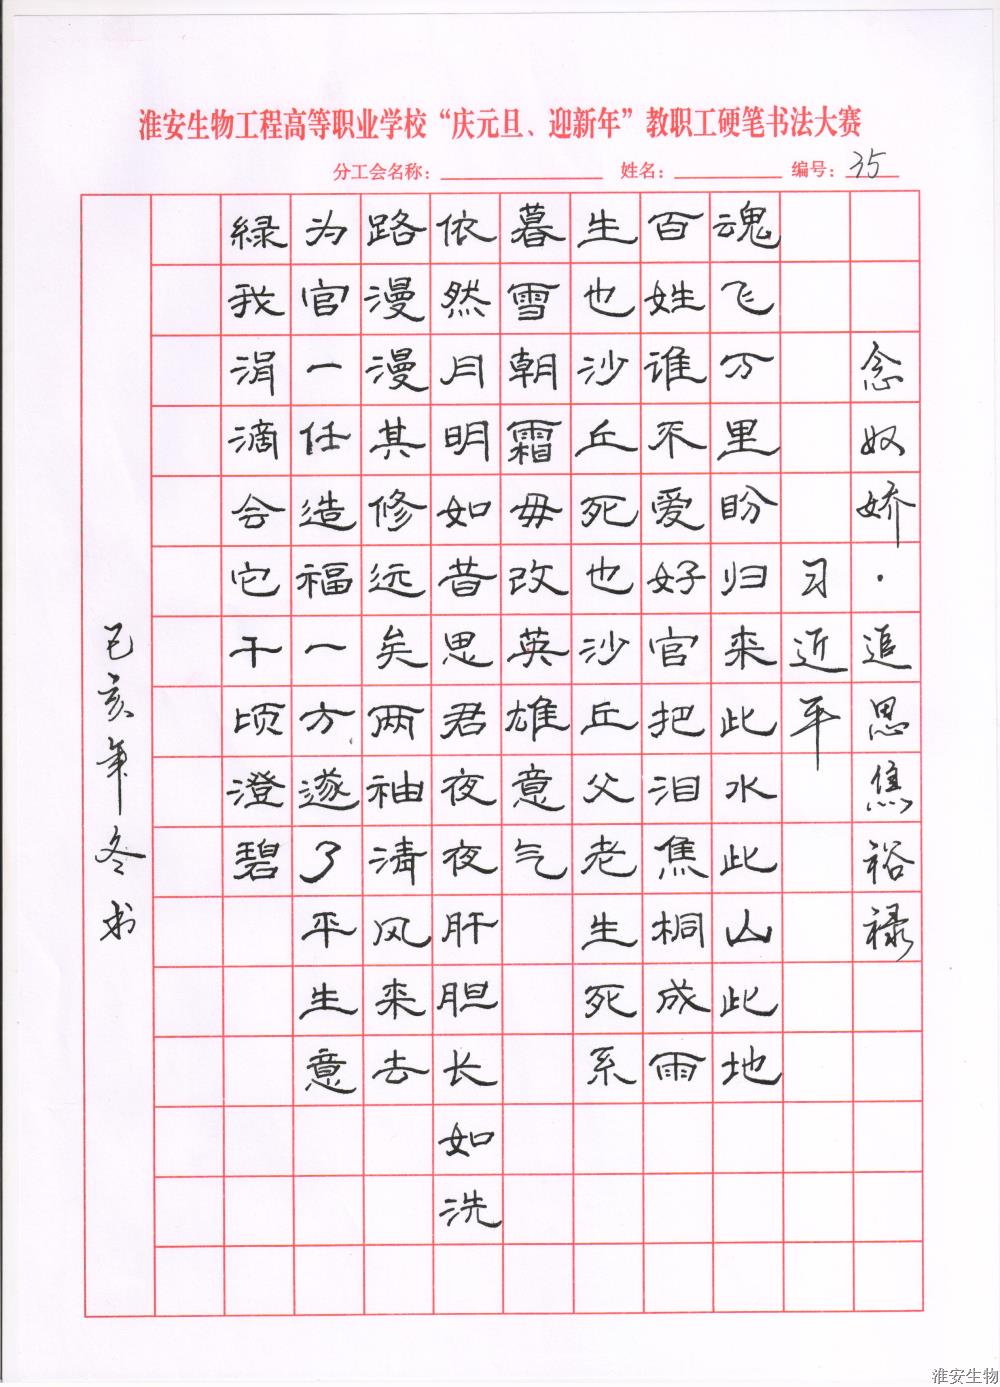 淮安生物工程高等职业学校“庆元旦、迎新年”教职工硬笔书法大赛
分工会名称：
姓名：
编号：35
念奴娇·追思焦裕禄
习近平
魂飞万里盼归来此水此山此地
百姓谁不爱好官把泪焦桐成雨
生也沙丘死也沙丘父老生死系
暮雪朝霜毋改英雄意气
依然月明如昔思君夜夜肝胆长如洗
路漫漫其修远矣两袖清风来去
为官一任造福一方遂了平生意
绿我涓滴会它千顷澄碧
己亥年冬书
淮安生物